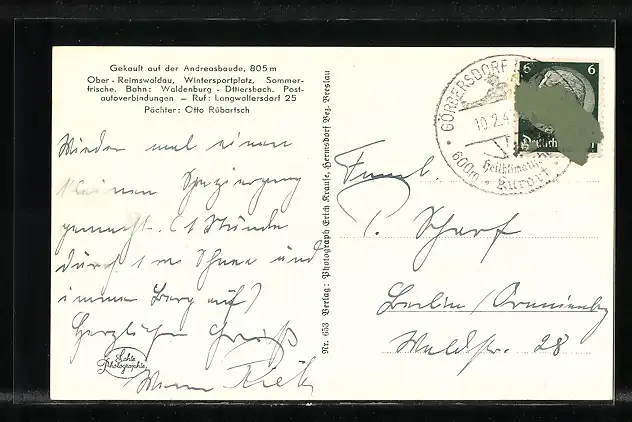 Gekauft auf der Andreasbaude, 805 m
Ober-Reimswaldau, Wintersportplatz, Sommer-
frische. Bahn: Waldenburg - Dittersbach. Post-
autoverbindungen – Ruf: Langwaltersdorf 25
Pächter: Otto Rübartsch
Wieder mal einen
kleinen Spaziergang
gemacht. (1 Stunde
durch 1 m Schnee und
immer Berg auf)
Herzliche Grüße
Echte
Photographie
Nr. 653 Verlag: Photograph Erich Krause, Hermsdorf Bez. Breslau
GÖRBERSDORF
10.2.4
600m
Heilklimatischer
Kurort
6 6
Deutsch
Faml.
P. Scharf
Berlin/Oranienbg
Waldstr. 28